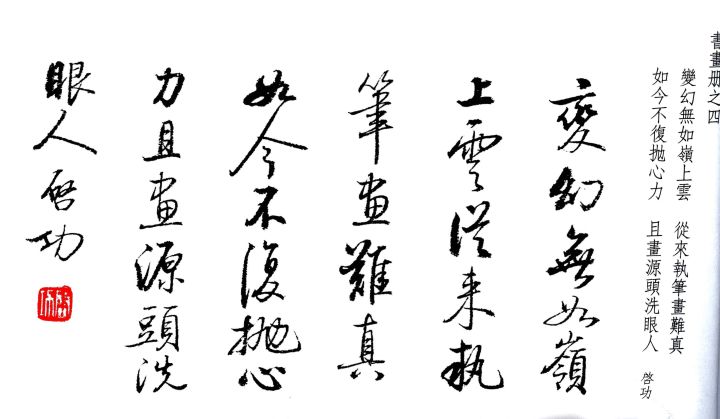 書畫册之四
變幻無如嶺上雲 從來執筆畫難真
如今不復抛心力 且畫源頭洗眼人 啓功
變幻無如嶺
上雲從來執
筆畫難真
如今不復抛心
力且畫源頭洗
眼人啓功
啓功